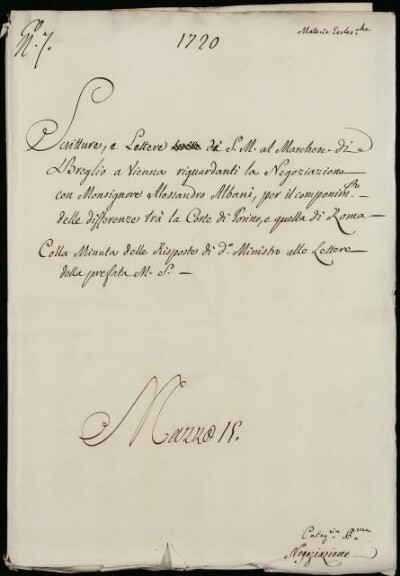 N.° 7.
1720
Materie Eccles.che
Scritture, e Lettere di S. M. al Marchese di
Breglio a Vienna riguardanti la Negoziazione
con Monsignore Alessandro Albani, per il componim.to
delle differenze trà la Corte di Torino, e quella di Roma
Colla Minuta delle Risposte di d.o Ministro alle Lettere
della prefata M. S.
Mazzo 15.
Categ.ria
Negoziazione